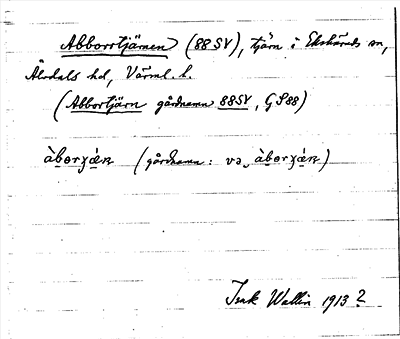 Abborrtjärnen (88 SV), tjärn i Ekshärads sn,
Älvdals hd, Värml. l.
(Abbortjärn gårdnamn 88SV, GS88)
àbərχǽn (gårdnamn: və àbərχǽn)
Isak Wallin 1913?